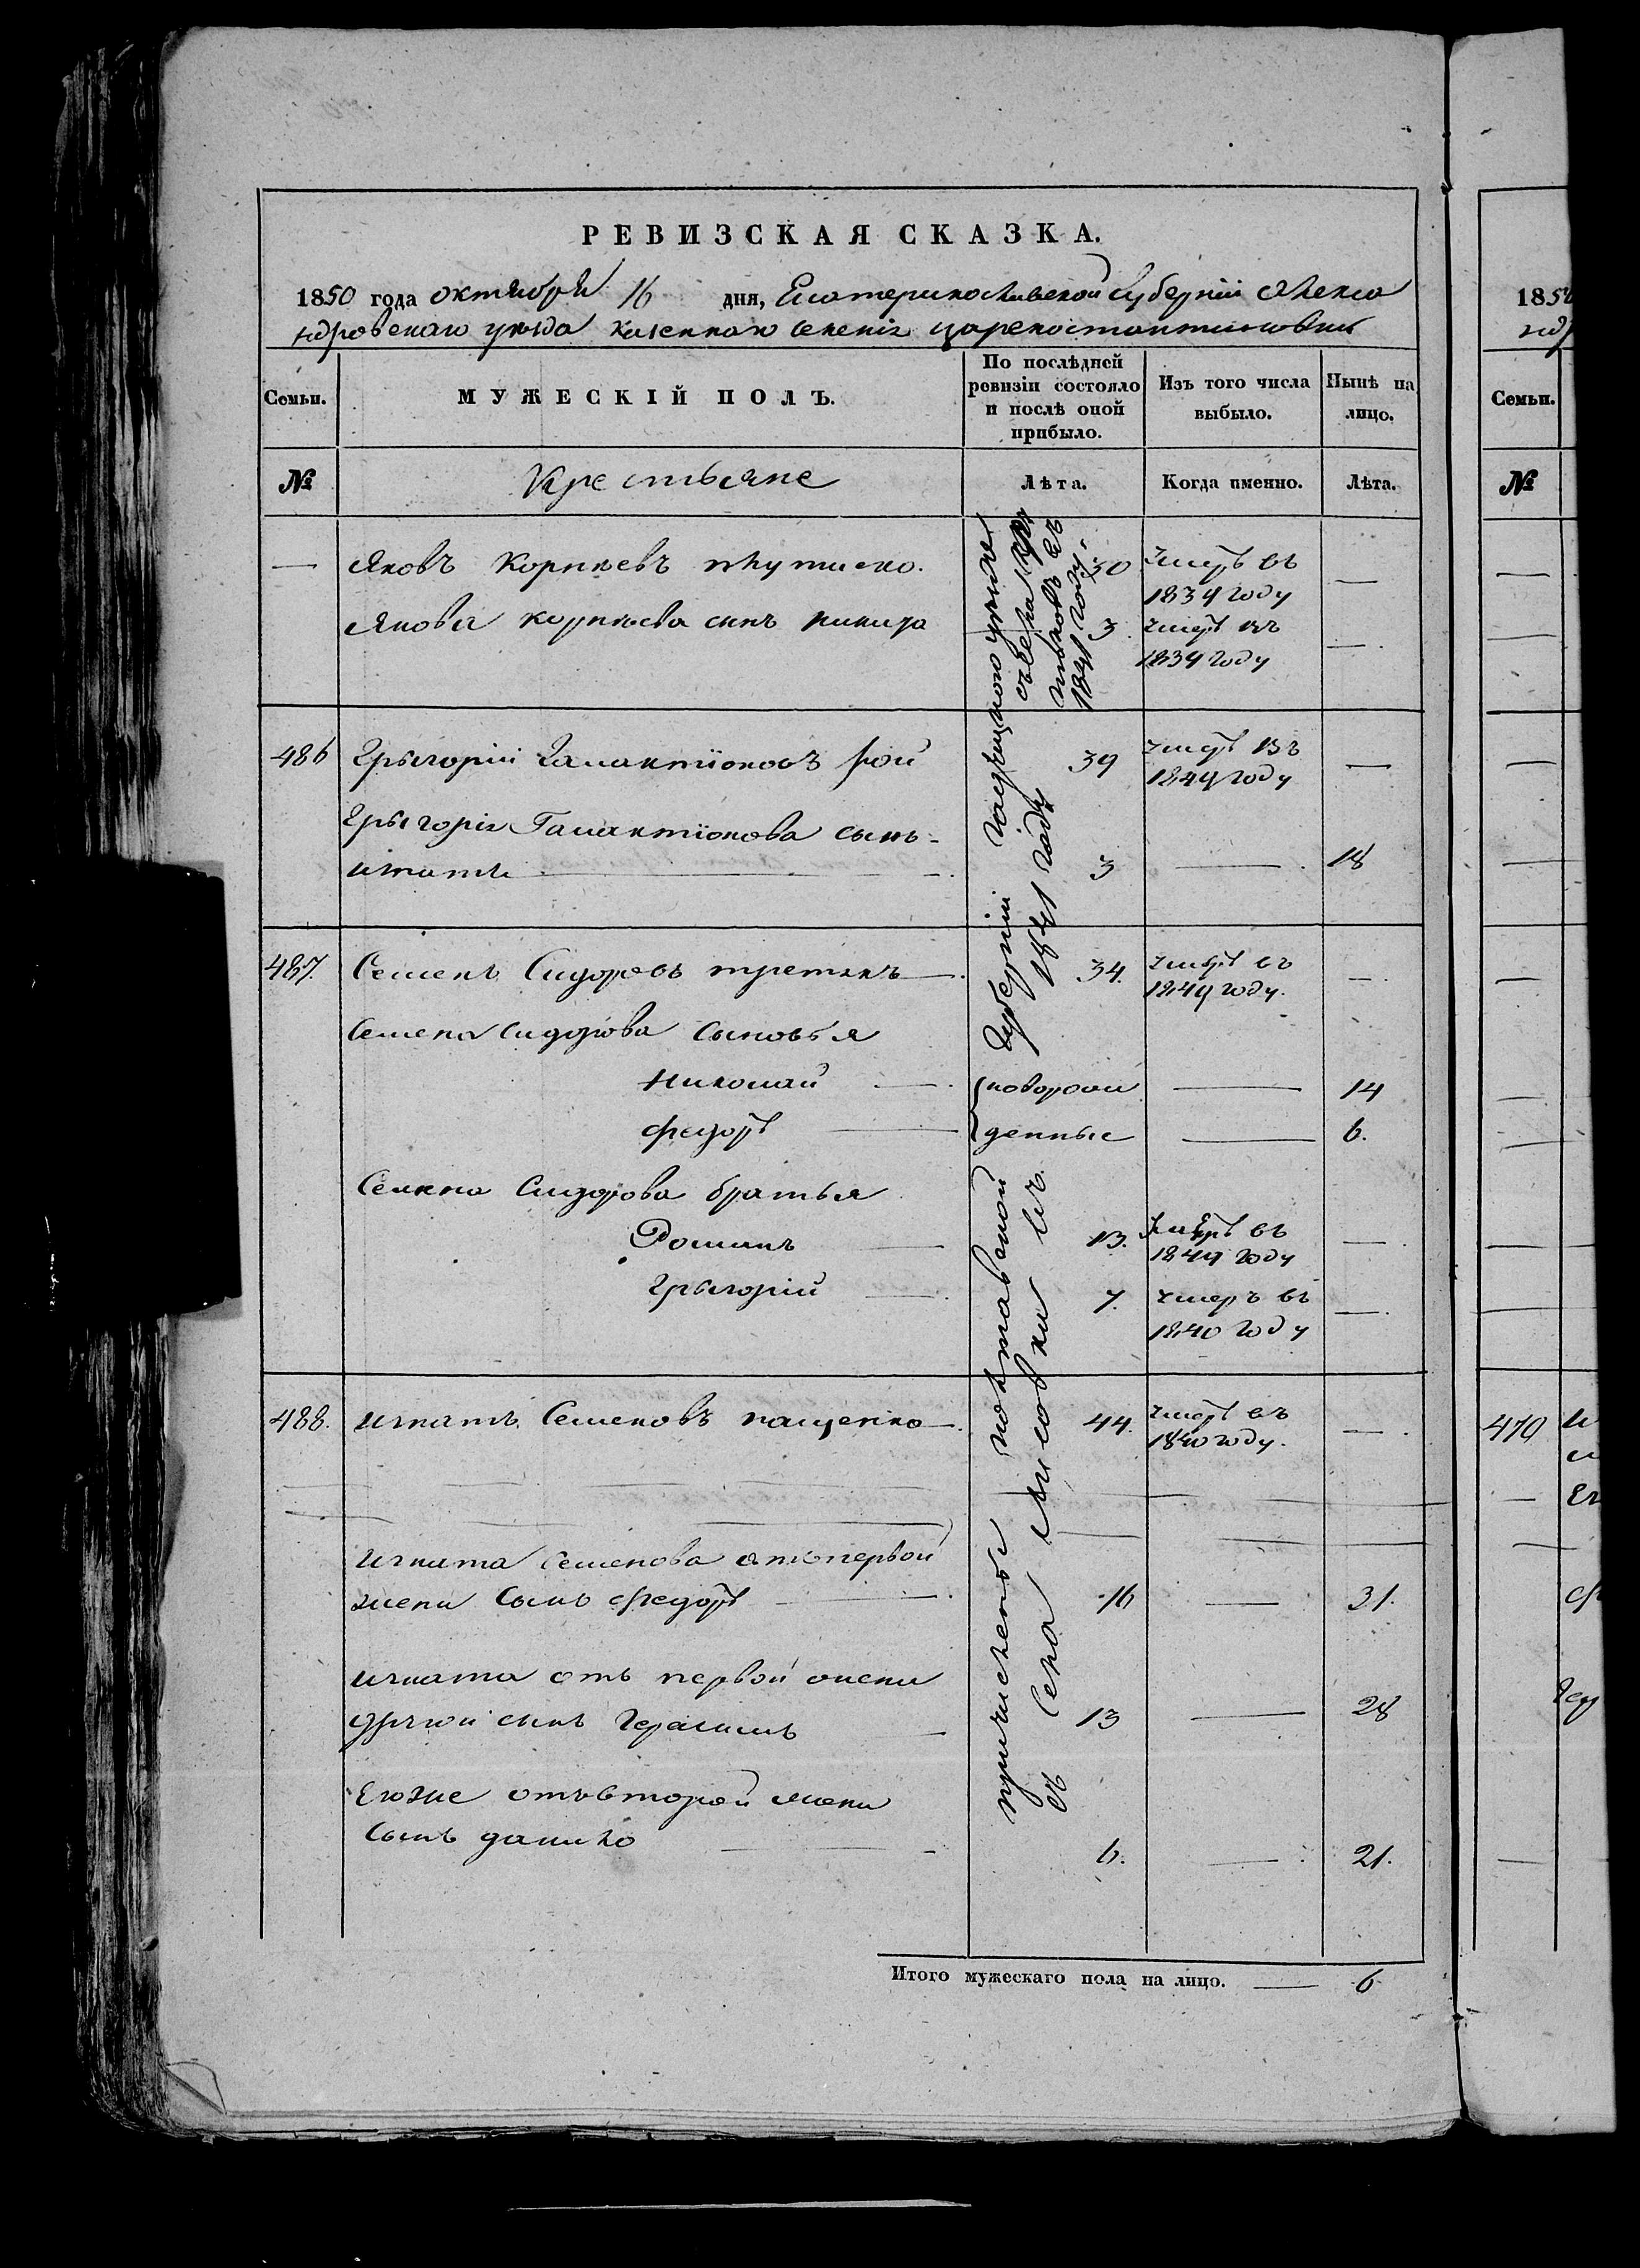 РЕВИЗСКАЯ СКАЗКА.
1850 года октября 16 дня, Екатеринославской губерніи Алекса
ндровскаго уезда казеннаго селенія Цареконстантиновки
Семьи.
МУЖЕСКІЙ ПОЛЪ.
По послѣдней
ревизіи состояло
и послѣ оной
прибыло.
Изъ того числа
выбыло.
Нынѣ на
лицо.
№
Крестьяне
Лѣта.
Когда именно.
Лѣта.
— Яковъ Корнѣевъ 30 умеръ въ —
1834 году
Якова Корнѣева сынъ 3 умеръ въ —
1834 году
486 Грыгорій Галактіоновъ 39 умеръ въ —
1849 году
Грыгорія Галактіонова сынъ
игнатъ 3 — 18
487 Семенъ Сидоровъ третякъ 34. умеръ въ —
1849 году.
Семена Сидорова сыновья
Николай новорож — 14
федоръ денные — 6.
Семена Сидорова братья
Романъ 13. умеръ въ —
1849 году
Грыгорій 7. умеръ въ —
1840 году
488. игнатъ Семеновъ пащенко 44. умеръ въ —
1840 году.
игната Семенова отъ первой
жены сынъ федоръ 16 — 31.
игната отъ первой жены
другой сынъ Герасимъ 13 — 28
Егоже отъ второй жены
сынъ данило 6. — 21.
причисленые полтавской губерніи уезда
съ села въ 1841 году
1841 году
Итого мужескаго пола на лицо. — 6
185
ндр
Семьи.
№
470